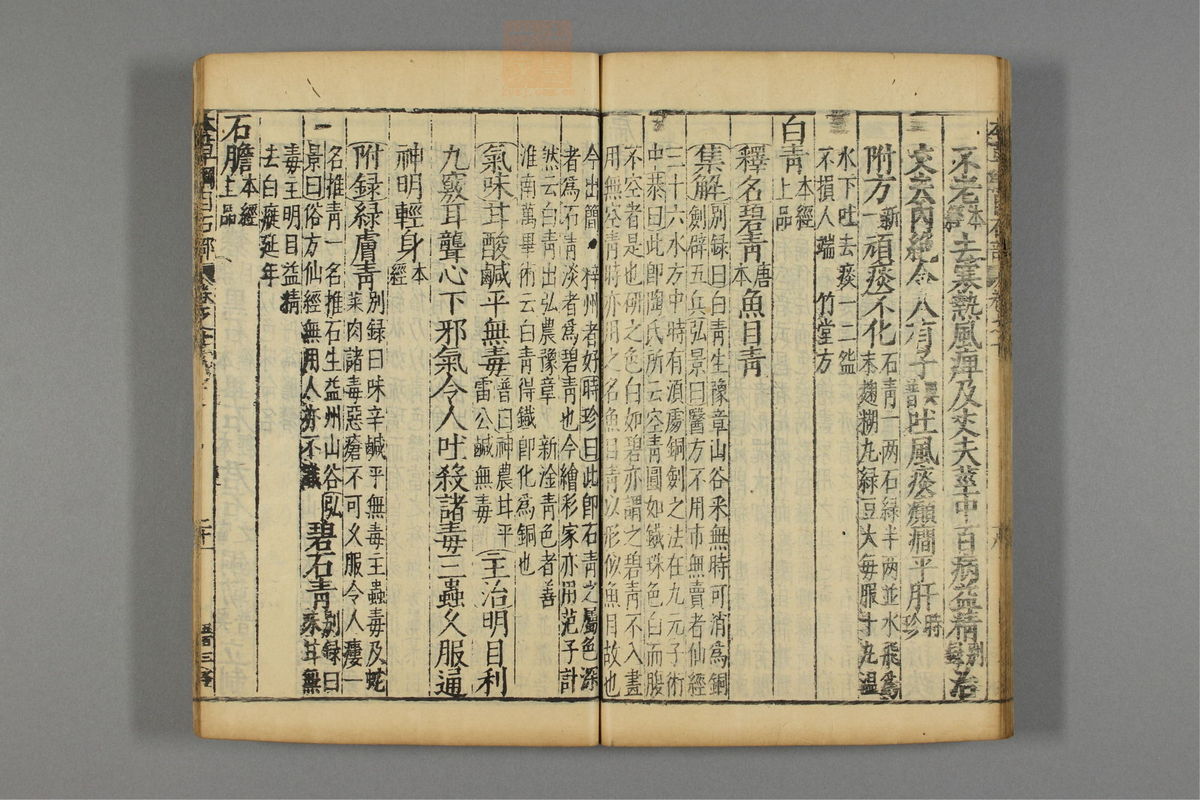 不老本經去寒熱風痺及丈夫莖中百病益精別錄治
丈夫內絕令人有子甄權吐風痰癲癇平肝時珍
附方新一頑痰不化石青一兩石綠半兩並水飛爲
末麪糊丸綠豆大每服十丸溫
水下吐去痰一二盌
不損人端 竹堂方
白青本經上品
釋名碧青唐本魚目青
集解別錄曰白青生豫章山谷采無時可消爲銅
劍辟五兵弘景曰醫方不用市無賣者仙經
三十六水方中時有須處銅劍之法在九元子術
中恭曰此即陶氏所云空青圓如鐵珠色白而腹
不空者是也研之色白如碧亦謂之碧青不入畫
用無空青時亦用之名魚目青以形似魚目故也
今出簡 梓州者好時珍曰此即石青之屬色深
者爲石青淡者爲碧青也今繪彩家亦用范子計
然云白青出弘農豫章 新淦青色者善
淮南萬畢術云白青得鐵即化爲銅也
氣味甘酸鹹平無毒普曰神農甘平
雷公鹹無毒主治明目利
九竅耳聾心下邪氣令人吐殺諸毒三蟲久服通
神明輕身本經
附錄綠膚青別錄曰味辛鹹平無毒主蟲毒及蛇
菜肉諸毒惡瘡不可久服令人瘻一
名推青一名推石生益州山谷弘
景曰俗方仙經無用人亦不識碧石青別錄曰
味甘無
毒主明目益精
去白癡延年
石膽本經上品